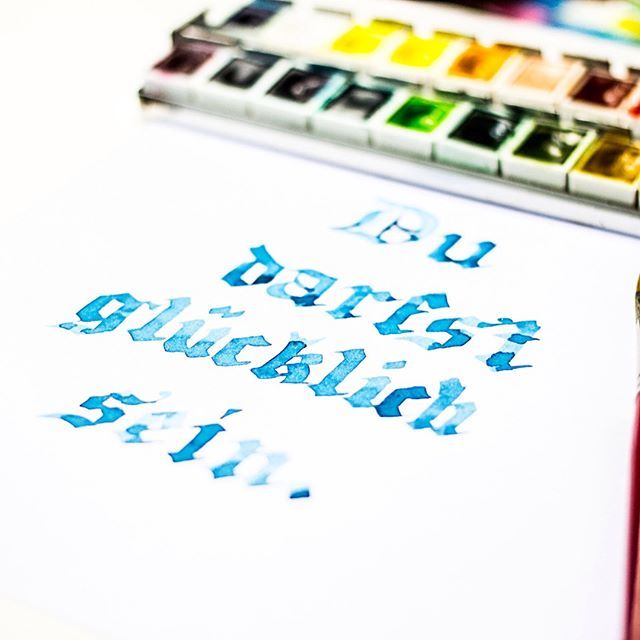 Du
darfst
glücklich
sein.